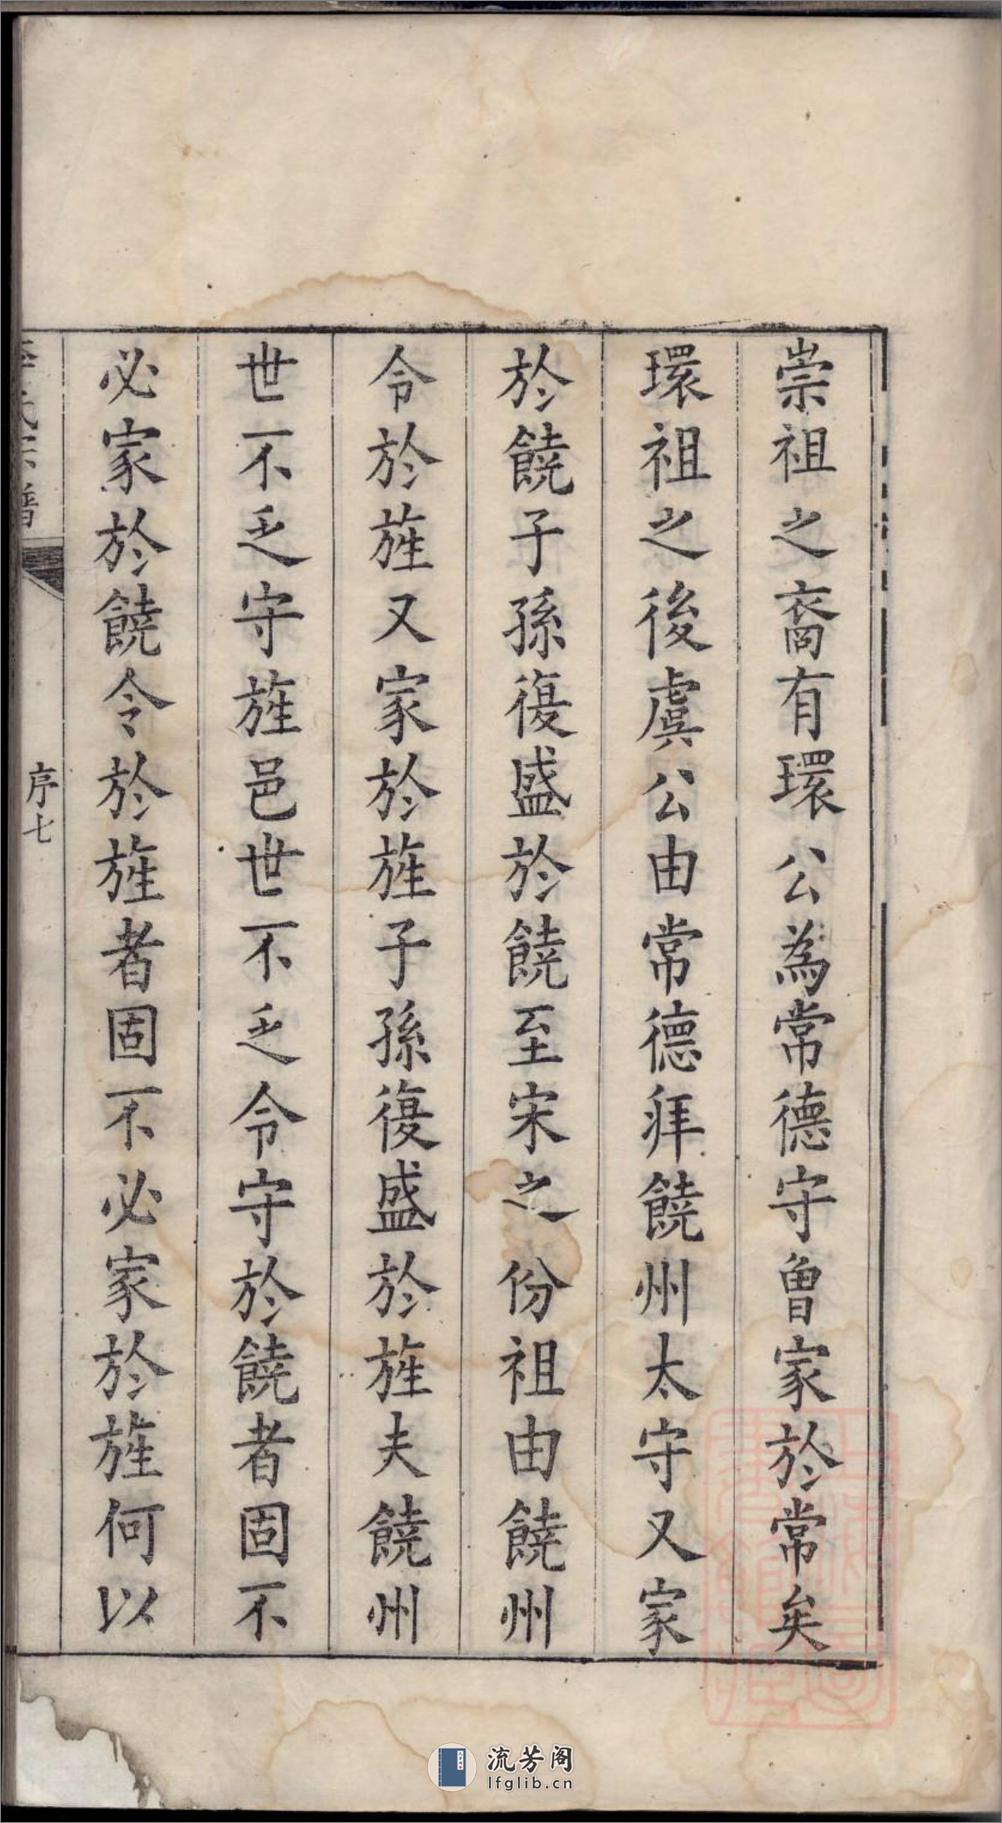 崇祖之裔有環公為常德守曾家於常矣
環祖之後虞公由常德拜饒州太守又家
於饒子孫復盛於饒至宋之份祖由饒州
令於旌又家於旌子孫復盛於旌夫饒州
世不乏守旌邑世不乏令守於饒者固不
必家於饒令於旌者固不必家於旌何以
氏宗譜
序七
流芳阁
lfglib.cn